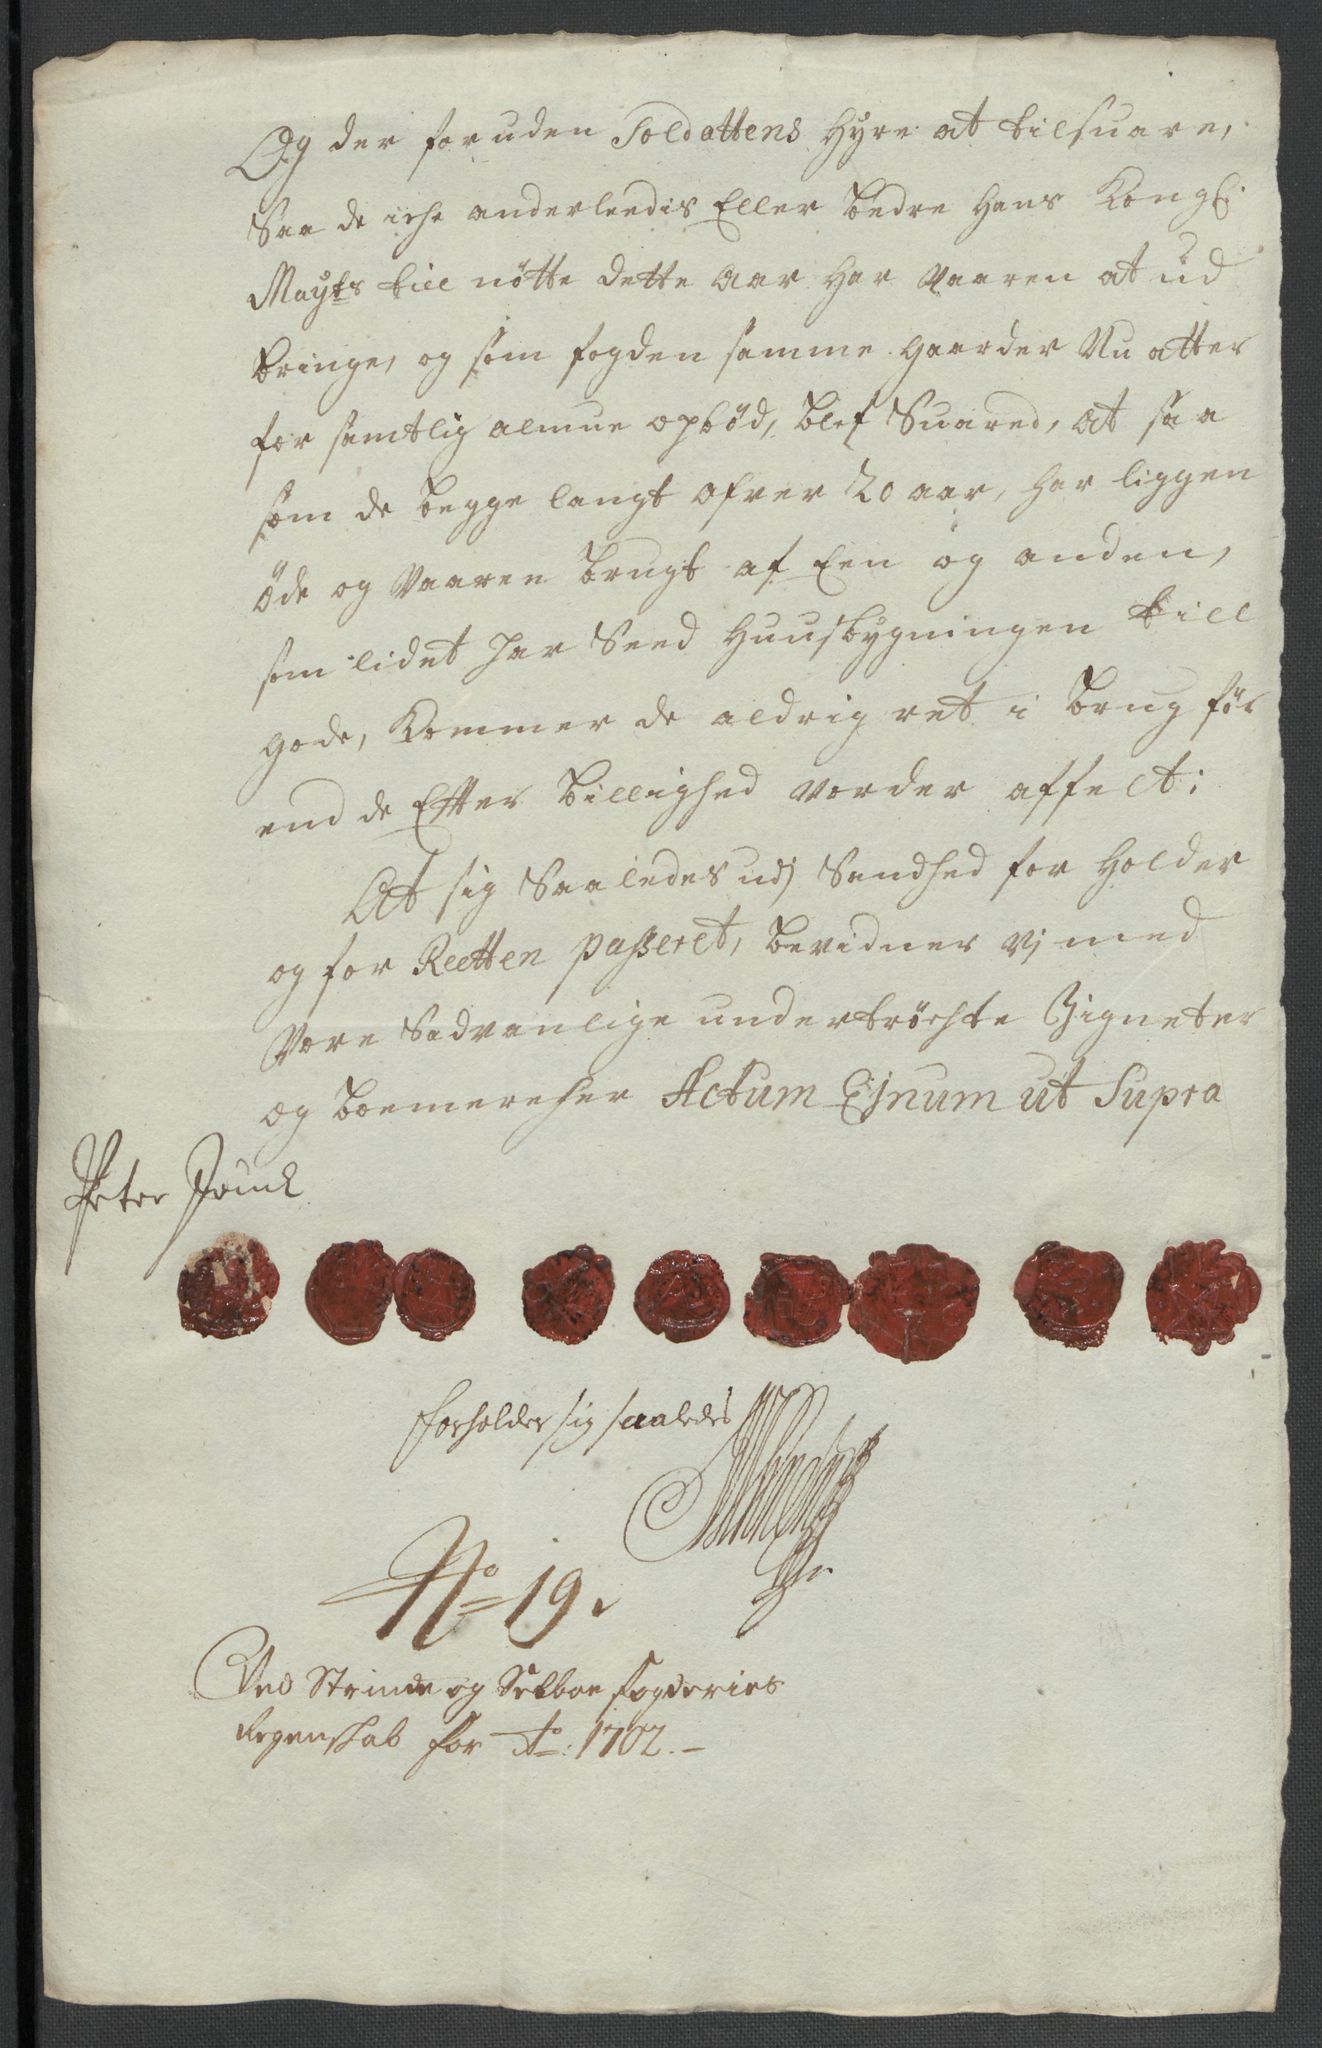 Og der foruden Soldattens Hyre at tilsuare,
Saa de iche anderleedis Eller bedre Hans Kongl:
Mayts till nötte dette Aar Har Vaaren at ud
bringe, og som fogden samme gaarder Nu atter
for samtlig almue opböd, blef Suared, at saa
som de begge langt ofver 20 aar, har liggen
öde og Vaaren brugt af Een og anden,
som lidet har Seed Huusbygningen till
gode, Kommer de aldrig ret i brug för
end de Effter billighed vorder affelt;
At sig Saaledes udj Sandhed for Holder
og for Retten passeret, bevidner vj med
Vore Sædvanlige undertröchte Zigneter
og boemercher Actum Ejnum ut Supra
Peter
forholder sig saaledes
No 19.
Ved Strinde og Selboe fogderies
Regenskab for Ao: 1702.